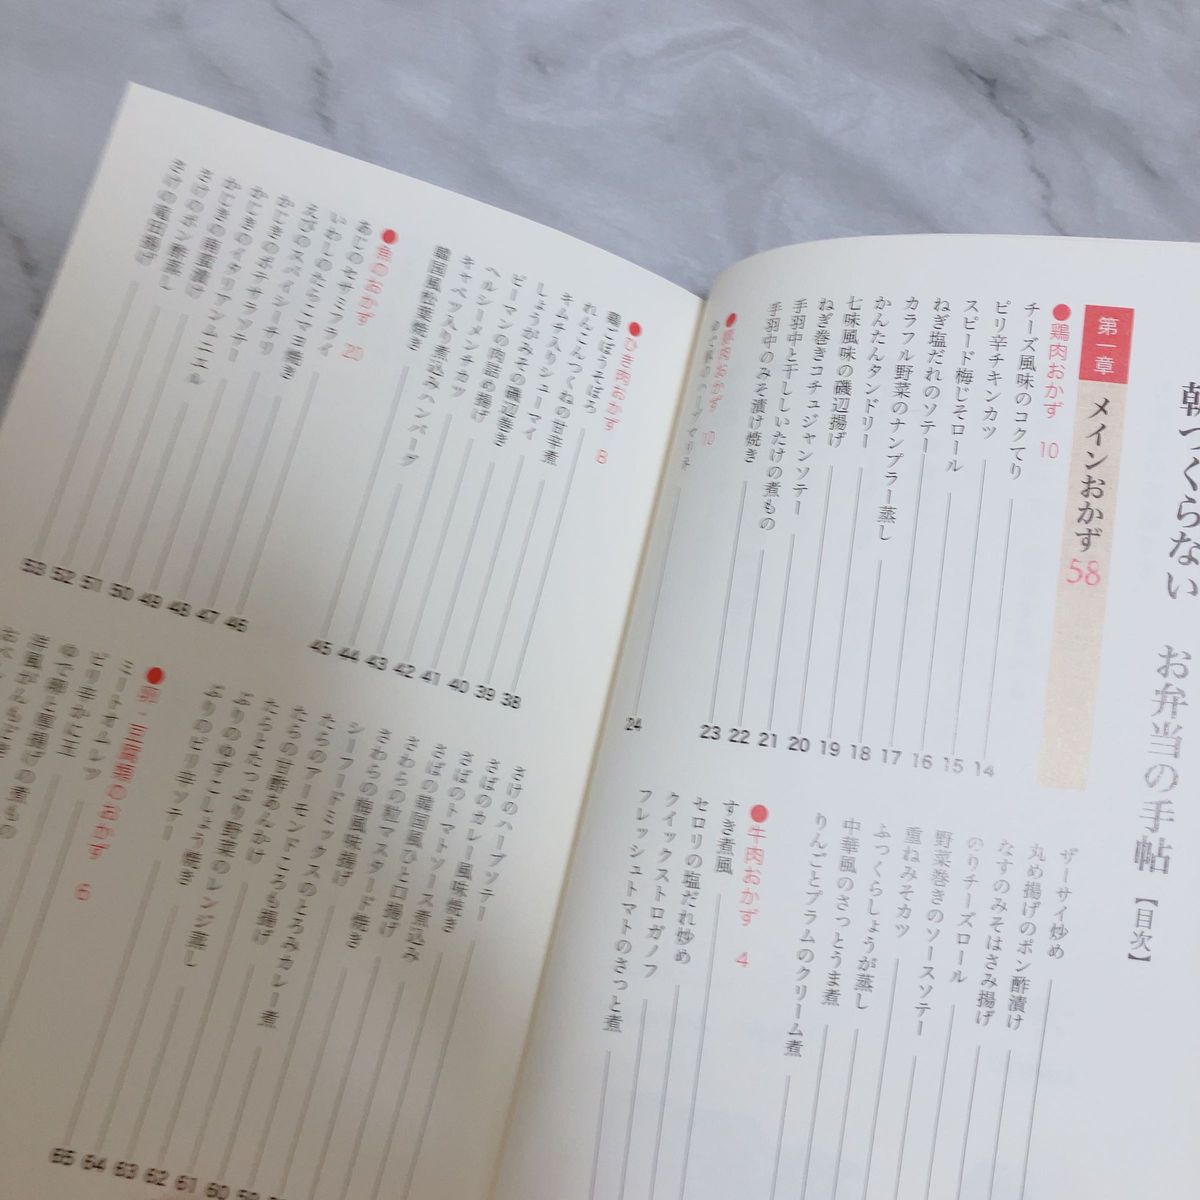 朝つくらない お弁当の手帖【目次】
第一章 メインおかず 58
●鶏肉おかず 10
チーズ風味のコクてり 14
ピリ辛チキンカツ 15
スピード梅じそロール 16
ねぎ塩だれのソテー 17
カラフル野菜のナンプラー蒸し 18
かんたんタンドリー 19
七味風味の磯辺揚げ 20
ねぎ巻きコチュジャンソテー 21
手羽中と干ししいたけの煮もの 22
手羽中のみそ漬け焼き 23
●豚肉おかず 10
ゆで豚のハーブマリネ 24
ザーサイ炒め
丸め揚げのポン酢漬け
なすのみそはさみ揚げ
のりチーズロール
野菜巻きのソースソテー
重ねみそカツ
ふっくらしょうが蒸し
中華風のさっとうま煮
りんごとプラムのクリーム煮
●牛肉おかず 4
すき煮風
セロリの塩だれ炒め
クイックストロガノフ
フレッシュトマトのさっと煮
●ひき肉おかず 8
鶏ごぼうそぼろ 38
れんこんつくねの甘辛煮 39
キムチ入りシューマイ 40
しょうがみその磯辺巻き 41
ピーマンの肉詰め揚げ 42
ヘルシーメンチカツ 43
キャベツ入り煮込みハンバーグ 44
韓国風松葉焼き 45
●魚のおかず 20
あじのセサミフライ 46
いわしのたらこマヨ焼き 47
えびのスペイシーチリ 48
かじきのポテサラソテー 49
かじきのイタリアンムニエル 50
かじきの南蛮漬け 51
さけのポン酢蒸し 52
さけの竜田揚げ 53
さけのハーブソテー
さばのカレー風味焼き
さばのトマトソース煮込み
さばの韓国風ひと口揚げ
さわらの粒マスタード焼き
さわらの梅風味揚げ
シーフードミックスのとろみカレー煮
たらのアーモンドころも揚げ
たらの甘酢あんかけ 60
たらとたっぷり野菜のレンジ蒸し 61
ぶりのゆずこしょう焼き 62
ぶりのピリ辛ソテー 63
●卵・豆腐類のおかず 6
ミートオムレツ 64
ピリ辛かに玉 65
ゆで卵と厚揚げの煮もの
洋風がんもどき